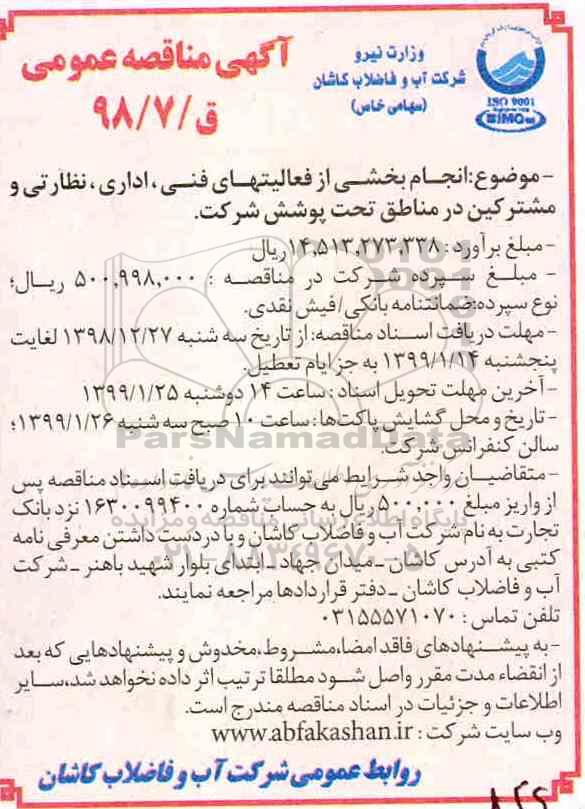 وزارت نیرو
شرکت آب و فاضلاب کاشان
(سهامی خاص)
ISO 9001
آگهی مناقصه عمومی
۹۸/۷/ق
- موضوع: انجام بخشی از فعالیتهای فنی، اداری، نظارتی و
مشترکین در مناطق تحت پوشش شرکت.
- مبلغ برآورد: ۱۴,۵۱۳,۲۷۳,۳۳۸ ریال
- مبلغ سپرده شرکت در مناقصه: ۵۰۰,۹۹۸,۰۰۰ ریال؛
نوع سپرده: ضمانتنامه بانکی/ فیش نقدی.
- مهلت دریافت اسناد مناقصه: از تاریخ سه شنبه ۱۳۹۸/۱۲/۲۷ لغایت
پنجشنبه ۱۳۹۹/۱/۱۴ به جز ایام تعطیل.
- آخرین مهلت تحویل اسناد: ساعت ۱۴ دوشنبه ۱۳۹۹/۱/۲۵
- تاریخ و محل گشایش پاکت‌ها: ساعت ۱۰ صبح سه شنبه ۱۳۹۹/۱/۲۶؛
سالن کنفرانس شرکت.
- متقاضیان واجد شرایط می‌توانند برای دریافت اسناد مناقصه پس
از واریز مبلغ ۵۰۰,۰۰۰ ریال به حساب شماره ۱۶۳۰۰۹۹۴۰۰ نزد بانک
تجارت به نام شرکت آب و فاضلاب کاشان و با در دست داشتن معرفی نامه
کتبی به آدرس کاشان ـ میدان جهاد ـ ابتدای بلوار شهید باهنر ـ شرکت
آب و فاضلاب کاشان ـ دفتر قراردادها مراجعه نمایند.
تلفن تماس: ۰۳۱۵۵۵۷۱۰۷۰
- به پیشنهادهای فاقد امضا، مشروط، مخدوش و پیشنهادهایی که بعد
از انقضاء مدت مقرر واصل شود مطلقا ترتیب اثر داده نخواهد شد، سایر
اطلاعات و جزئیات در اسناد مناقصه مندرج است.
وب سایت شرکت: www.abfakashan.ir
روابط عمومی شرکت آب و فاضلاب کاشان
ParsNamadData
پایگاه اطلاع رسانی مناقصه و مزایده
۰۲۱-۸۸۳۴۹۶۷۰-۵